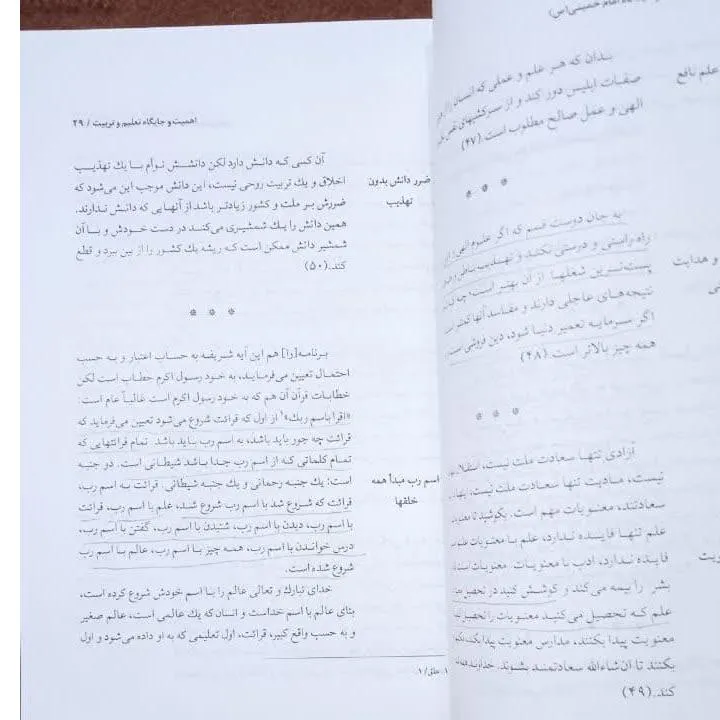 امام خمینی(س)
علم نافع
بدان که هر علم و عملی که انسان را از
صفات ابلیس دور کند و از سرکشیهای نفس
الهی و عمل صالح مطلوب است.(۴۷)
* * *
و هدایت
به جان دوست قسم که اگر علوم الهی و
راه راستی و درستی نکند و تهذیب باطن و
پست‌ترین شغلها از آن بهتر است، چه
نتیجه‌های عاجلی دارند و مفاسد آنها کمتر است
اگر سرمایه تعمیر دنیا شود، دین فروشی است
همه چیز بالاتر است.(۴۸)
* * *
آزادی تنها سعادت ملت نیست، استقلال
نیست، مادیت تنها سعادت ملت نیست،
سعادتند، معنویات مهم است. بکوشید تا
علم تنها فایده ندارد، علم با معنویات علم
فایده ندارد، ادب با معنویات. معنویات است
بشر را بیمه می‌کند و کوشش کنید در تحصیل
علم که تحصیل می‌کنید معنویت را تحصیل
معنویت پیدا بکنند، مدارس معنویت پیدا بکند،
بکنند تا ان‌شاءالله سعادتمند بشوند. خداوند
کند.(۴۹)
اهمیت و جایگاه تعلیم و تربیت / ۲۹
ضرر دانش بدون
تهذیب
آن کسی که دانش دارد لکن دانشش توأم با یك تهذیب
اخلاق و یك تربیت روحی نیست، این دانش موجب این می‌شود که
ضررش بر ملت و کشور زیادتر باشد از آنهایی که دانش ندارند.
همین دانش را یك شمشیری می‌کند در دست خودش و با آن
شمشیر دانش ممکن است که ریشه یك کشور را از بین ببرد و قطع
کند.(۵۰)
* * *
اسم رب مبدأ همه
خلقها
برنامه[را] هم این آیه شریفه به حساب اعتبار و به حسب
احتمال تعیین می‌فرماید، به خود رسول اکرم خطاب است لکن
خطابات قرآن آن هم که به خود رسول اکرم است غالباً عام است:
«اقرأ باسم ربك»۱ از اول که قرائت شروع می‌شود تعیین می‌فرماید که
قرائت چه جور باید باشد، به اسم رب باید باشد. تمام قرائتهایی که
تمام کلماتی که از اسم رب جدا باشد شیطانی است. دو جنبه
است: یك جنبه رحمانی و یك جنبه شیطانی. قرائت به اسم رب،
قرائت که شروع شد با اسم رب شروع شد، علم با اسم رب، قرائت
با اسم رب، دیدن با اسم رب، شنیدن با اسم رب، گفتن با اسم رب،
درس خواندن با اسم رب، همه چیز با اسم رب، عالم با اسم رب
شروع شده است.
خدای تبارك و تعالی عالم را با اسم خودش شروع کرده است،
بنای عالم با اسم خداست و انسان که یك عالمی است، عالم صغیر
و به حسب واقع کبیر، قرائت، اول تعلیمی که به او داده می‌شود و اول
۱. علق/ ۱.